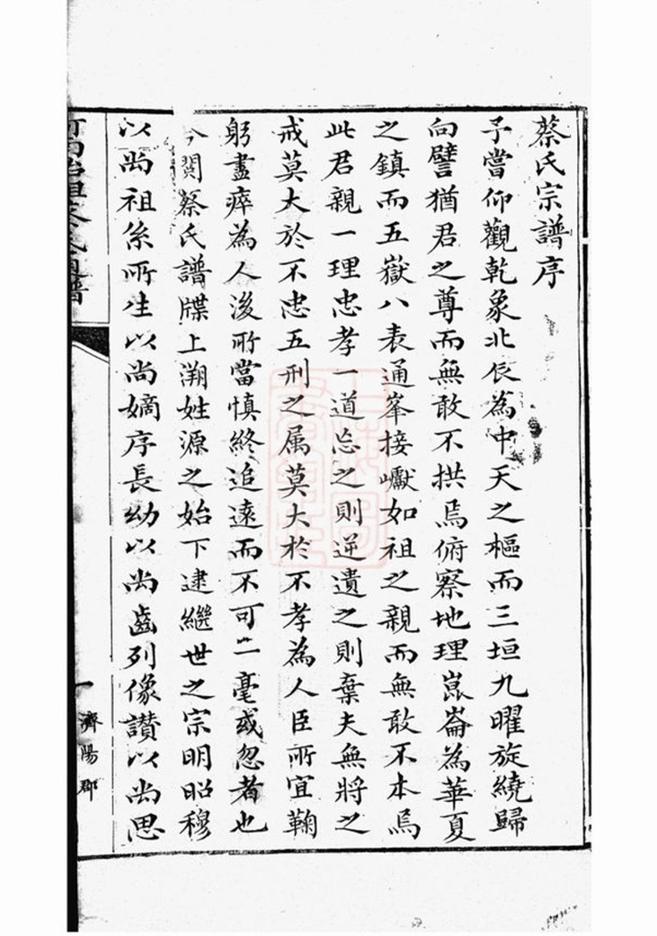 蔡氏宗譜序
予嘗仰觀乾象北辰為中天之樞而三垣九曜旋繞歸
向譬猶君之尊而無敢不拱焉俯察地理崑崙為華夏
之鎮而五嶽八表通峯接巘如祖之親而無敢不本焉
此君親一理忠孝一道忘之則逆遺之則棄夫無將之
戒莫大於不忠五刑之属莫大於不孝為人臣所宜鞠
躬盡瘁為人後所當慎終追遠而不可一毫或忽者也
今閱蔡氏譜牒上溯姓源之始下逮繼世之宗明昭穆
以尚祖系所生以尚嫡序長幼以尚齒列像讚以尚思
一 濟陽郡